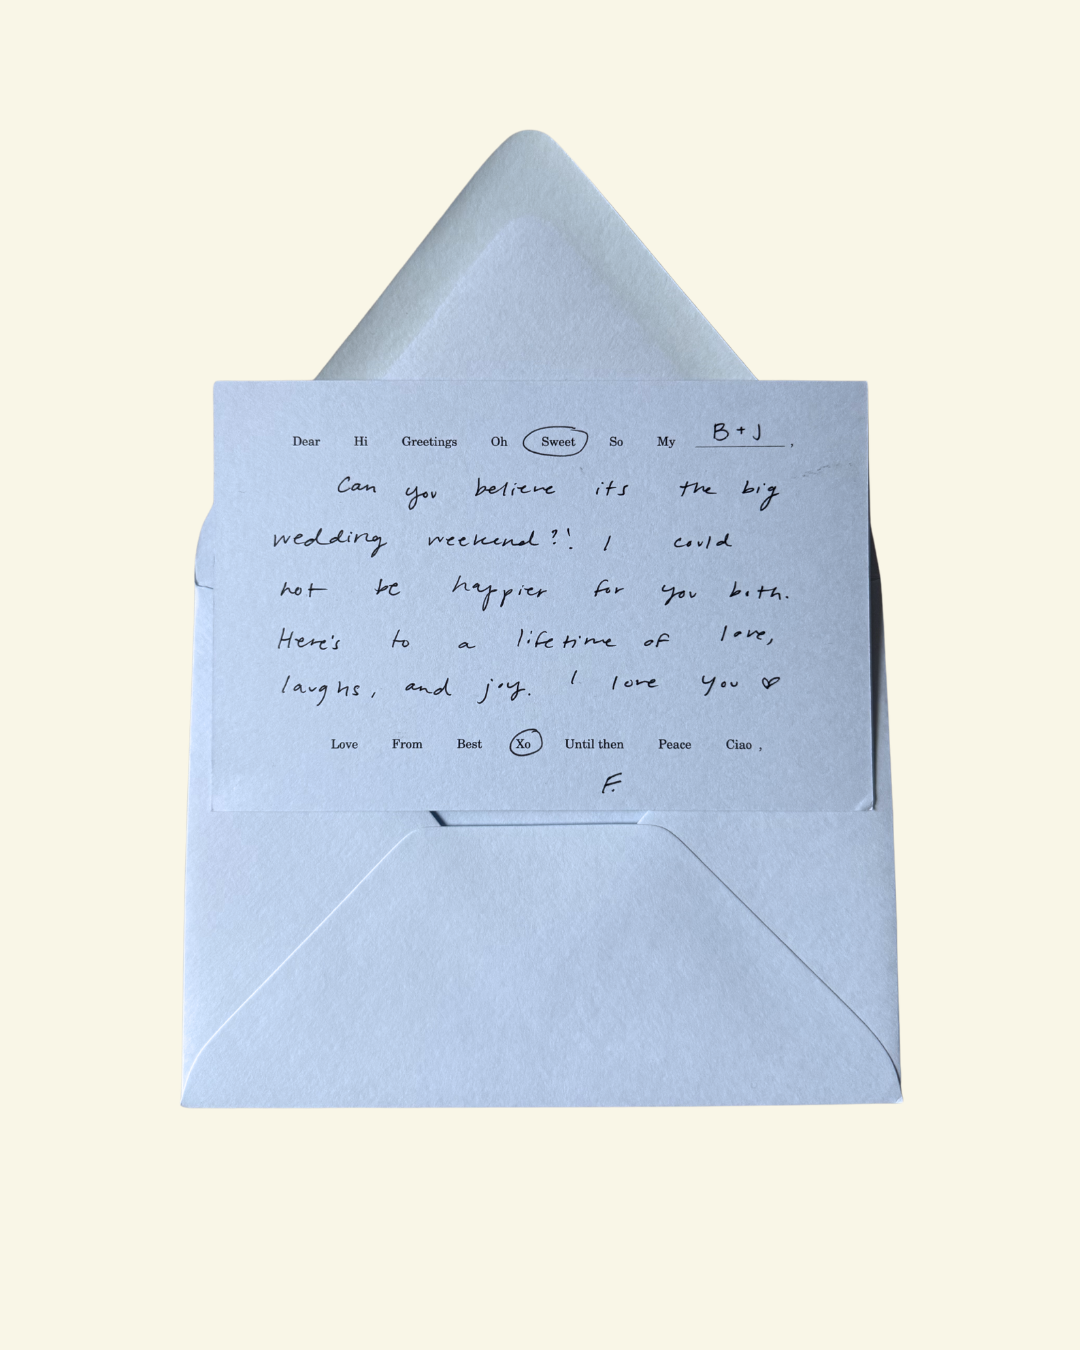 Dear Hi Greetings Oh Sweet So My B + J ,
Can you believe its the big
wedding weekend?! I could
not be happier for you both.
Here's to a lifetime of love,
laughs, and joy. I love you ♡
Love From Best Xo Until then Peace Ciao ,
F.